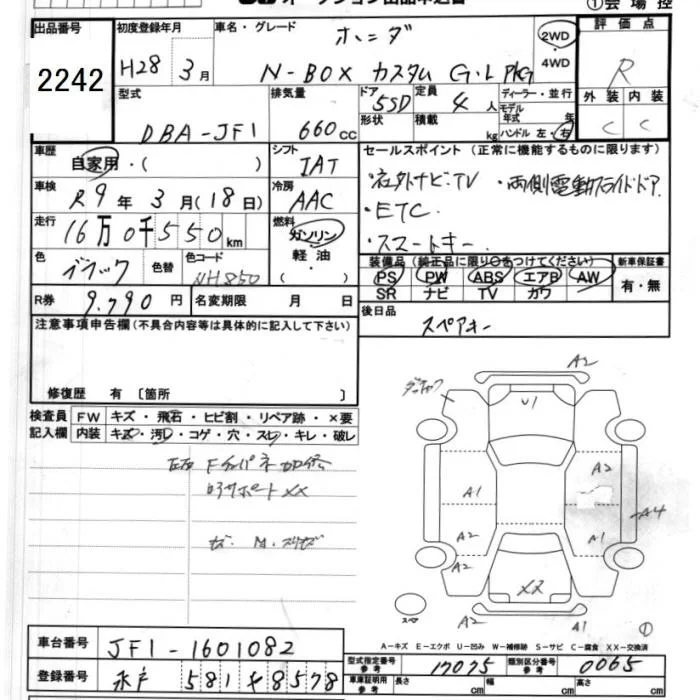 ①会場控
出品番号 2242
初度登録年月 H28年 3月
車名・グレード ホンダ
N-BOX カスタム G・L PKG
2WD・4WD
評価点 R
外装 C 内装 C
型式 DBA-JF1
排気量 660cc
ドア 形状 5SD
定員 4人
積載 kg
ディーラー・並行
モデル年式 年
ハンドル 左・右
車歴 自家用・( )
シフト IAT
車検 R9年 3月(18日)
冷房 AAC
走行 16万0千550km
燃料 ガソリン・軽油・( )
色 ブラック 色替
色コード NH850
R券 9,790円
名変期限 月 日
セールスポイント (正常に機能するものに限ります)
・社外ナビ・TV ・両側電動スライドドア
・ETC
・スマートキー
装備品(純正品に限り○をつけてください) 新車保証書
PS PW ABS エアB AW 有・無
SR ナビ TV カワ
後日品 スペアキー
注意事項申告欄(不具合内容等は具体的に記入して下さい)
修復歴 有 〔箇所 〕
検査員 FW キズ・飛石・ヒビ割・リペア跡・×要
記入欄 内装 キズ・汚レ・コゲ・穴・スレ・キレ・破レ
XX
A2
U1
A2
A1
A4
A2
A1
XX
A2
A2
A1
スペア
①
A-キズ E-エクボ U-凹み W-補修跡 S-サビ C-腐食 XX-交換済
車台番号 JF1-1601082
登録番号 水戸 581 8578
型式指定番号 参考 17075
類別区分番号 参考 0065
車庫証明用 参考 長さ cm 幅 cm 高さ cm